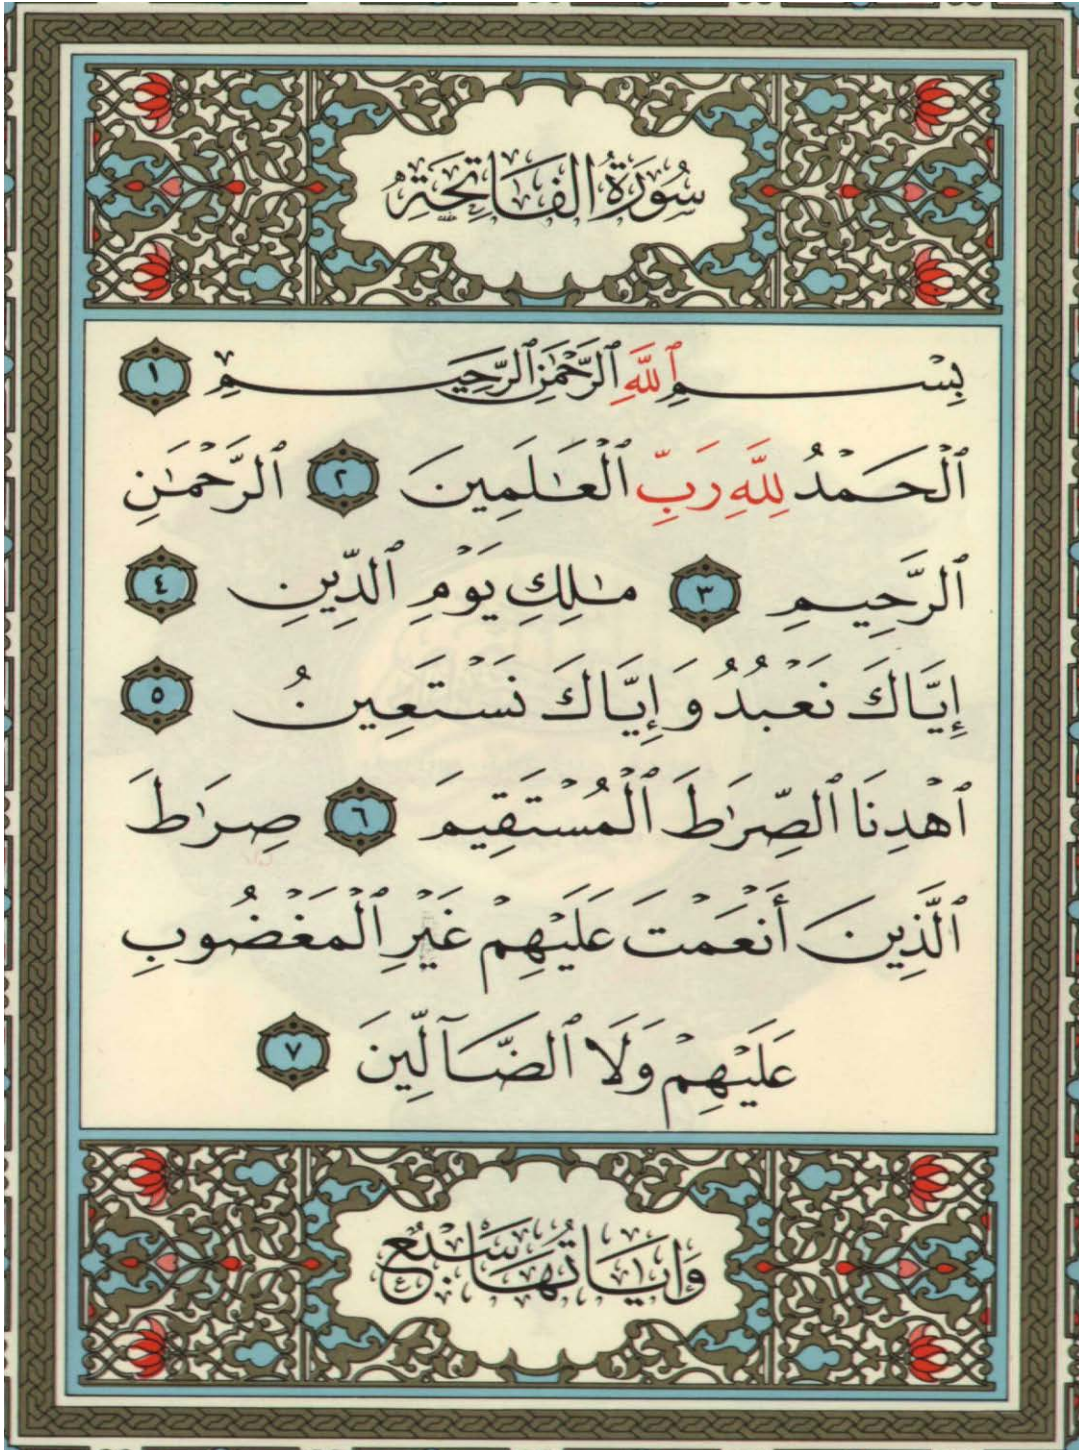 سُورَةُ الفَاتِحَةِ
بِسْمِ ٱللَّهِ ٱلرَّحْمَٰنِ ٱلرَّحِيمِ ١
ٱلْحَمْدُ لِلَّهِ رَبِّ ٱلْعَٰلَمِينَ ٢ ٱلرَّحْمَٰنِ
ٱلرَّحِيمِ ٣ مَٰلِكِ يَوْمِ ٱلدِّينِ ٤
إِيَّاكَ نَعْبُدُ وَإِيَّاكَ نَسْتَعِينُ ٥
ٱهْدِنَا ٱلصِّرَٰطَ ٱلْمُسْتَقِيمَ ٦ صِرَٰطَ
ٱلَّذِينَ أَنْعَمْتَ عَلَيْهِمْ غَيْرِ ٱلْمَغْضُوبِ
عَلَيْهِمْ وَلَا ٱلضَّآلِّينَ ٧
وَايَاتُهَا سَبْعٌ